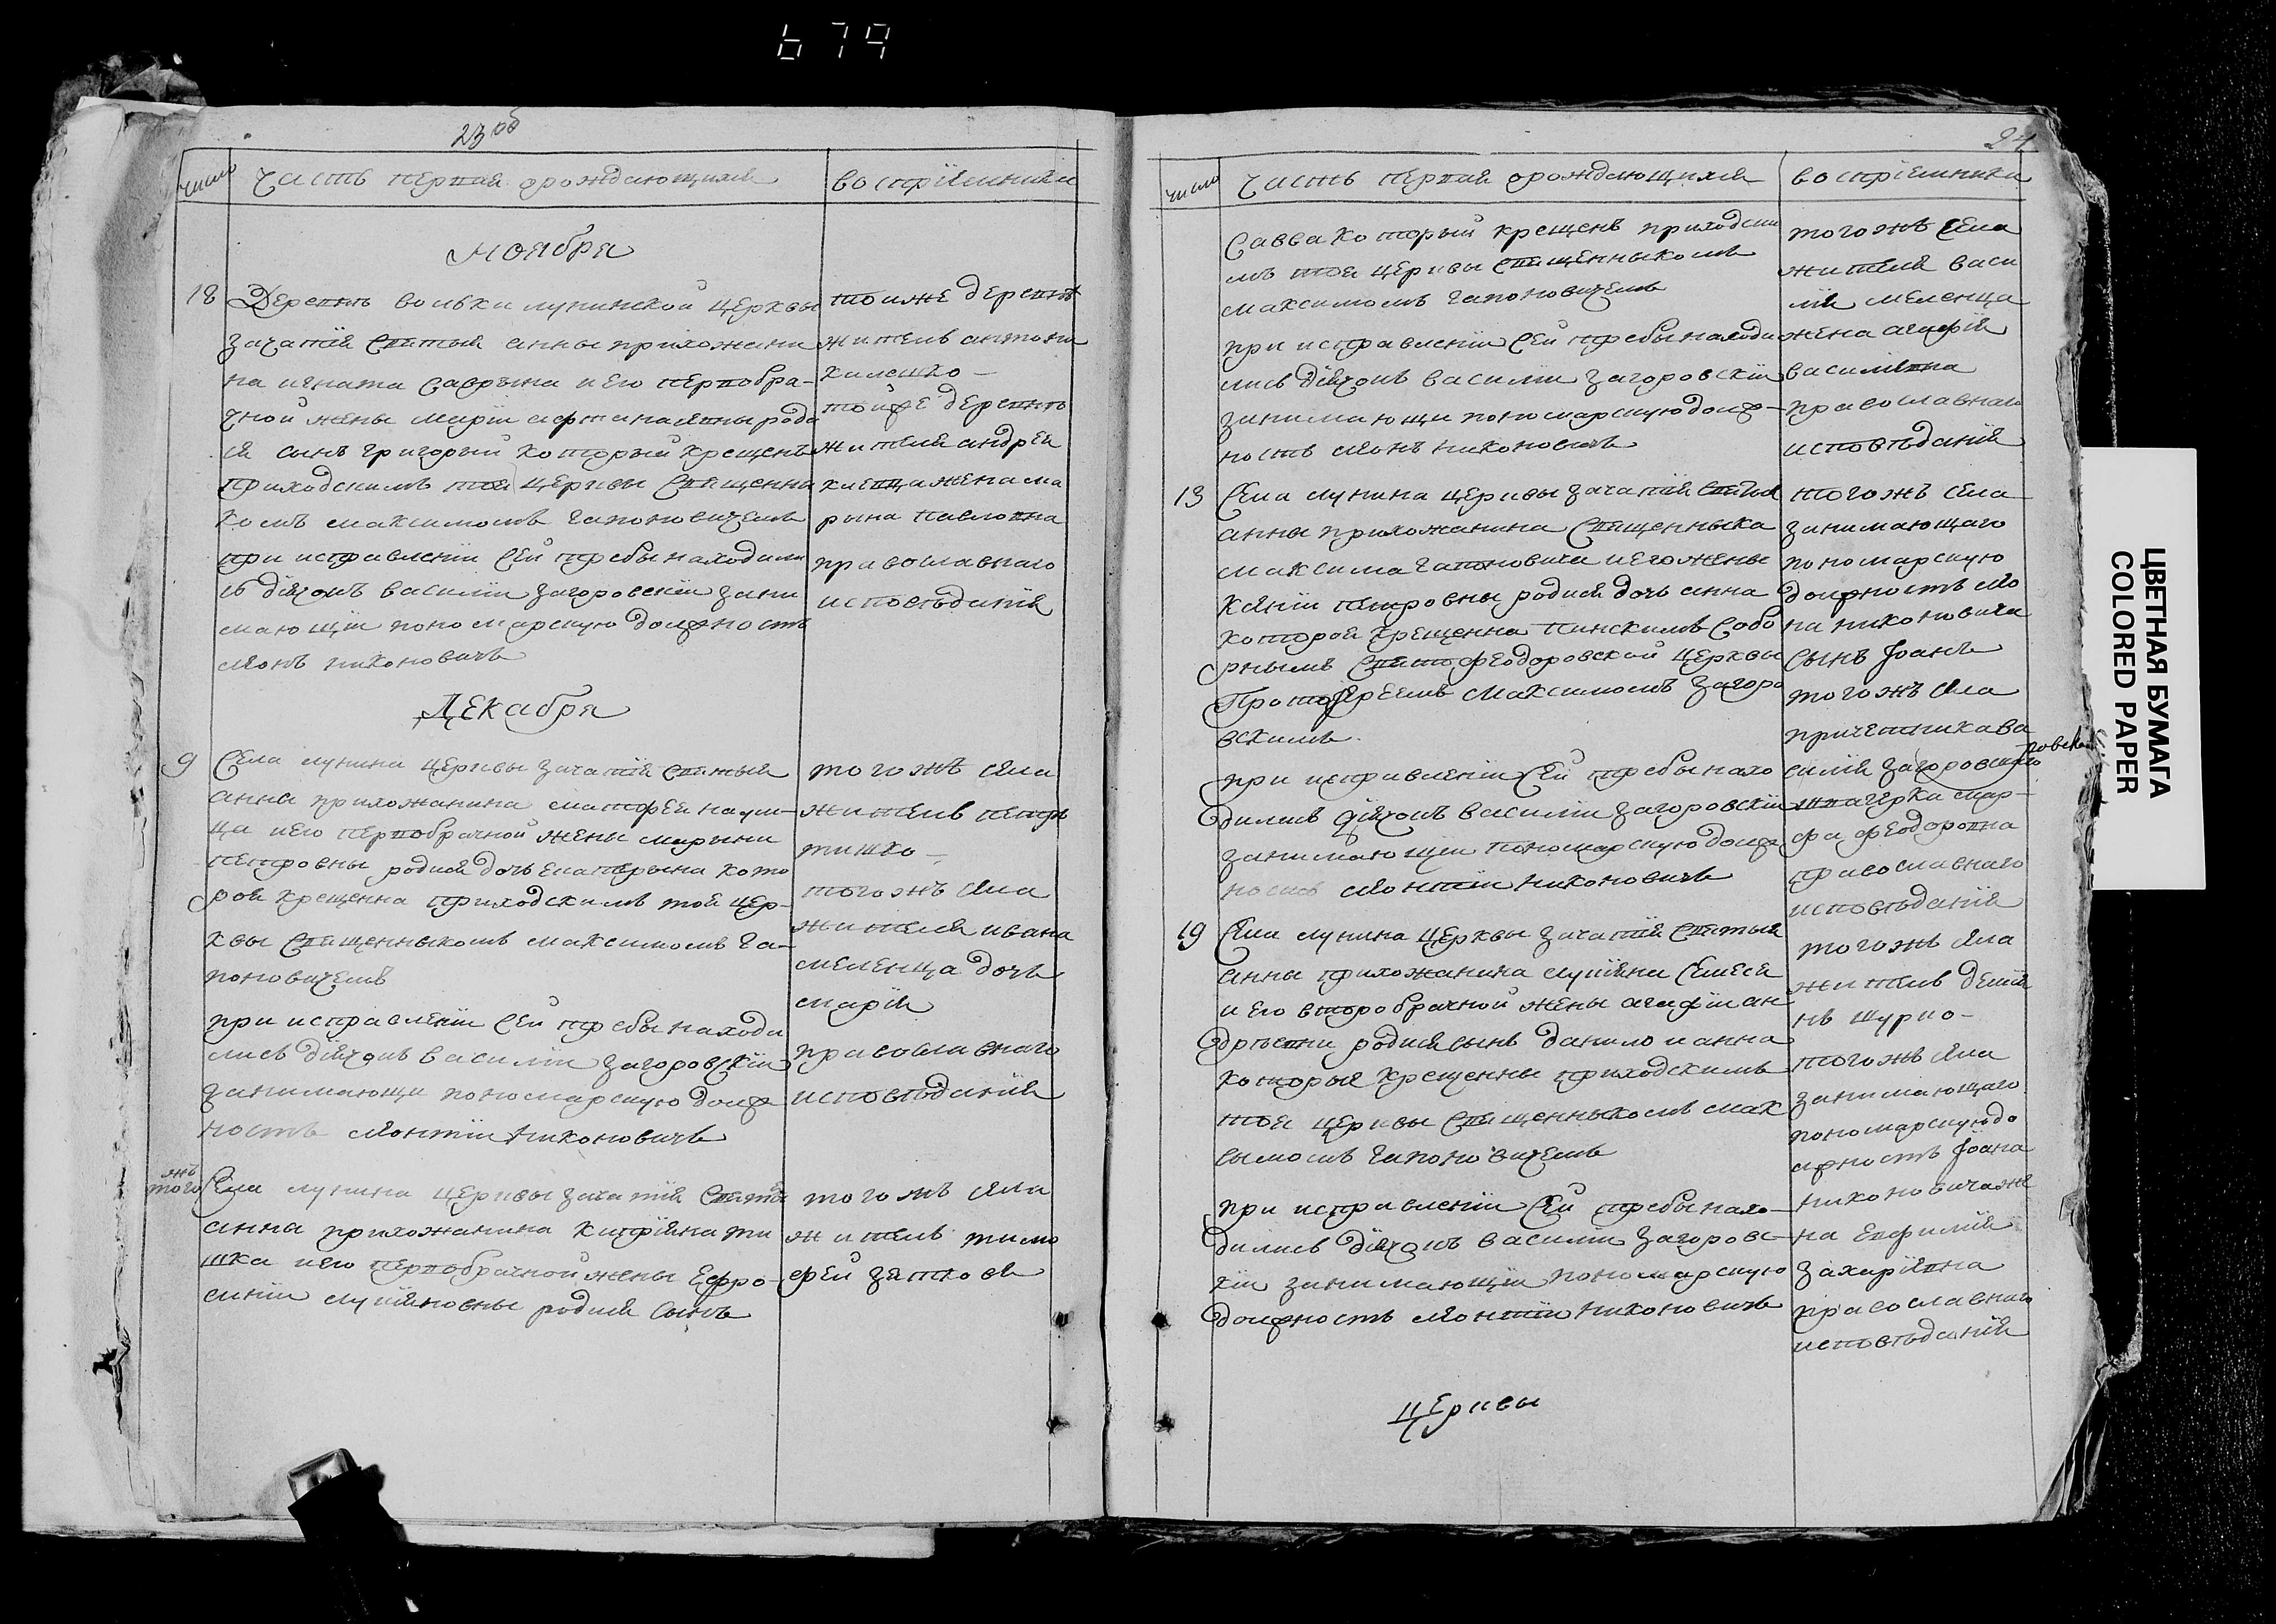 679
23 об
число
часть первая орождающихся
восприемники
Ноября
18
Деревнѣ вольки лунинской церквы
зачатїя святыя анны прихожани
на игната саврыка и его первобра-
чной жены марїи мартиналевны роди
ся сынъ григорый который крещенъ
приходскимъ тоя церквы священни
комъ максимомъ гапоновичемъ
при исправленїи сей требы находили
сь дїячокъ василїи загоровскїи зани
мающїи пономарскую должность
леонъ никоновичъ
тоиже деревнѣ
житель антони
килешко-
тойже деревнѣ
жителя андрея
киевца жена ма
рына павловна
православнаго
исповѣданїя
Декабря
9
Села лунина церквы зачатїя святыя
анны прихожанина матфея
ца и его первобрачной жены марыны
петровны родися дочь екатерына кото
рая крещенна приходскимъ тоя цер-
квы священныкомъ максимомъ га-
поновичемъ
при исправленїи сей требы находи
лись дїячокъ василїи загоровскїи
занимающи пономарскую долж
ность леонтїи никоновичъ
того жъ села
житель петръ
тишко-
того жъ села
жителя ивана
меленца дочь
марїя
православнаго
исповѣданїя
того жъ
Села лунина церквы зачатїя святыя
анны прихожанина кипрїяна ти
шка и его первобрачной жены ефро-
синїи лукїяновны родися сынъ
того жъ села
житель тимо
фей зятковъ
24
число
часть первая орождающихся
воспрїемники
савва который крещенъ приходски
мъ тоя церквы священныкомъ
максимомъ гапоновичемъ
при исправленїи сей требы находи
лись дїячокъ василїи загоровскїи
занимающи пономарскую долж-
ность леонъ никоновичъ
того жъ села
жителя васи
лїя меленца
жена агафїя
василевна
православнаго
исповѣданїя
13
Села лунина церквы зачатїя святыя
анны прихожанина священныка
максима гапоновича и его жены
ксенїи петровны родися дочь анна
которая крещенна пинскимъ собо
рнымъ святофеодоровской церквы
Протоїереемъ Максимомъ Загоро
вскимъ.
при исправленїи сей требы нахо
дились дїячокъ василїи загоровскїи
занимающїи пономарскую долж
ность леонтїи никоновичъ
того жъ села
занимающаго
пономарскую
должность лео
на никоновича
сынъ Іоанъ
того жъ села
причетника ва
силїя загоровскаго
марфа феодоровна
православнаго
исповѣданїя
19
Села лунина церквы зачатїя святыя
анны прихожанина лукїяна
и его второбрачной жены агафїи ан
дрѣевни родися сынъ данило и анна
которыя крещенны приходскимъ
тоя церквы священныкомъ мак
сымомъ гапоновичемъ
при исправленїи сей требы нахо-
дились дїячокъ василїи загоровс-
кїи занимающїи пономарскую
должность леонтїи никоновичъ
того жъ села
житель демїя
нъ шурпо-
того жъ села
занимающаго
пономарскую до
лжность Іоана
никоновича же
на евфимїя
захарїевна
православнаго
исповѣданїя
церквы
ЦВЕТНАЯ БУМАГА
COLORED PAPER